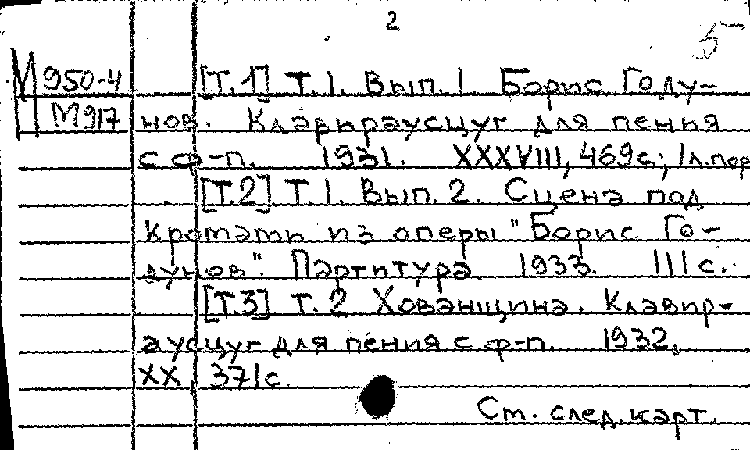 2
5
М950-4 [Т.1] Т.1. Вып.1 Борис Году-
М917 нов. Клавираусцуг для пения
с ф-п. 1931. XXXVIII, 469с.; 1л.пор
[Т.2] Т.1. Вып.2. Сцена под
Кромами из оперы "Борис Го-
дунов". Партитура. 1933. 111с.
[Т.3] Т.2 Хованщина. Клавир-
аусцуг для пения с ф-п. 1932,
XX, 371с.
См. след. карт.